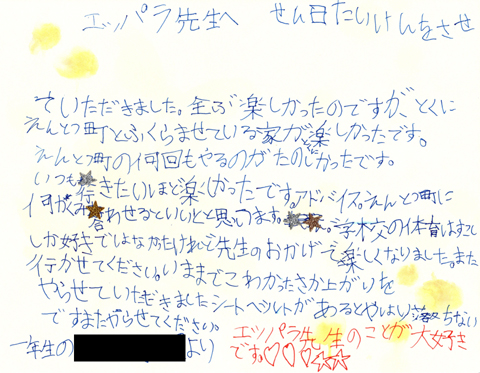 エッパラ先生へ せん日たいいけんをさせ
ていただきました。全ぶ楽しかったのですが、とくに
えんとつ町とふくらませている家が楽しかったです。
えんとつ町の何回もやるのがたのしかったです。
いつも行きたいほど楽しかったです。アドバイス。えんとつ町に
何かくみ合わせるといいとと思います。学校の体育はすこし
しか好きではなかたけれど先生のおかげで楽しくなりました。また
行かせてください。いままでこわかったさか上がりを
やらせていただきましたシートベルトがあるとやはり落ちない
ですまたやらせてください。
一年生の より
エッパラ先生のことが大好き
です。♡♡♡☆☆